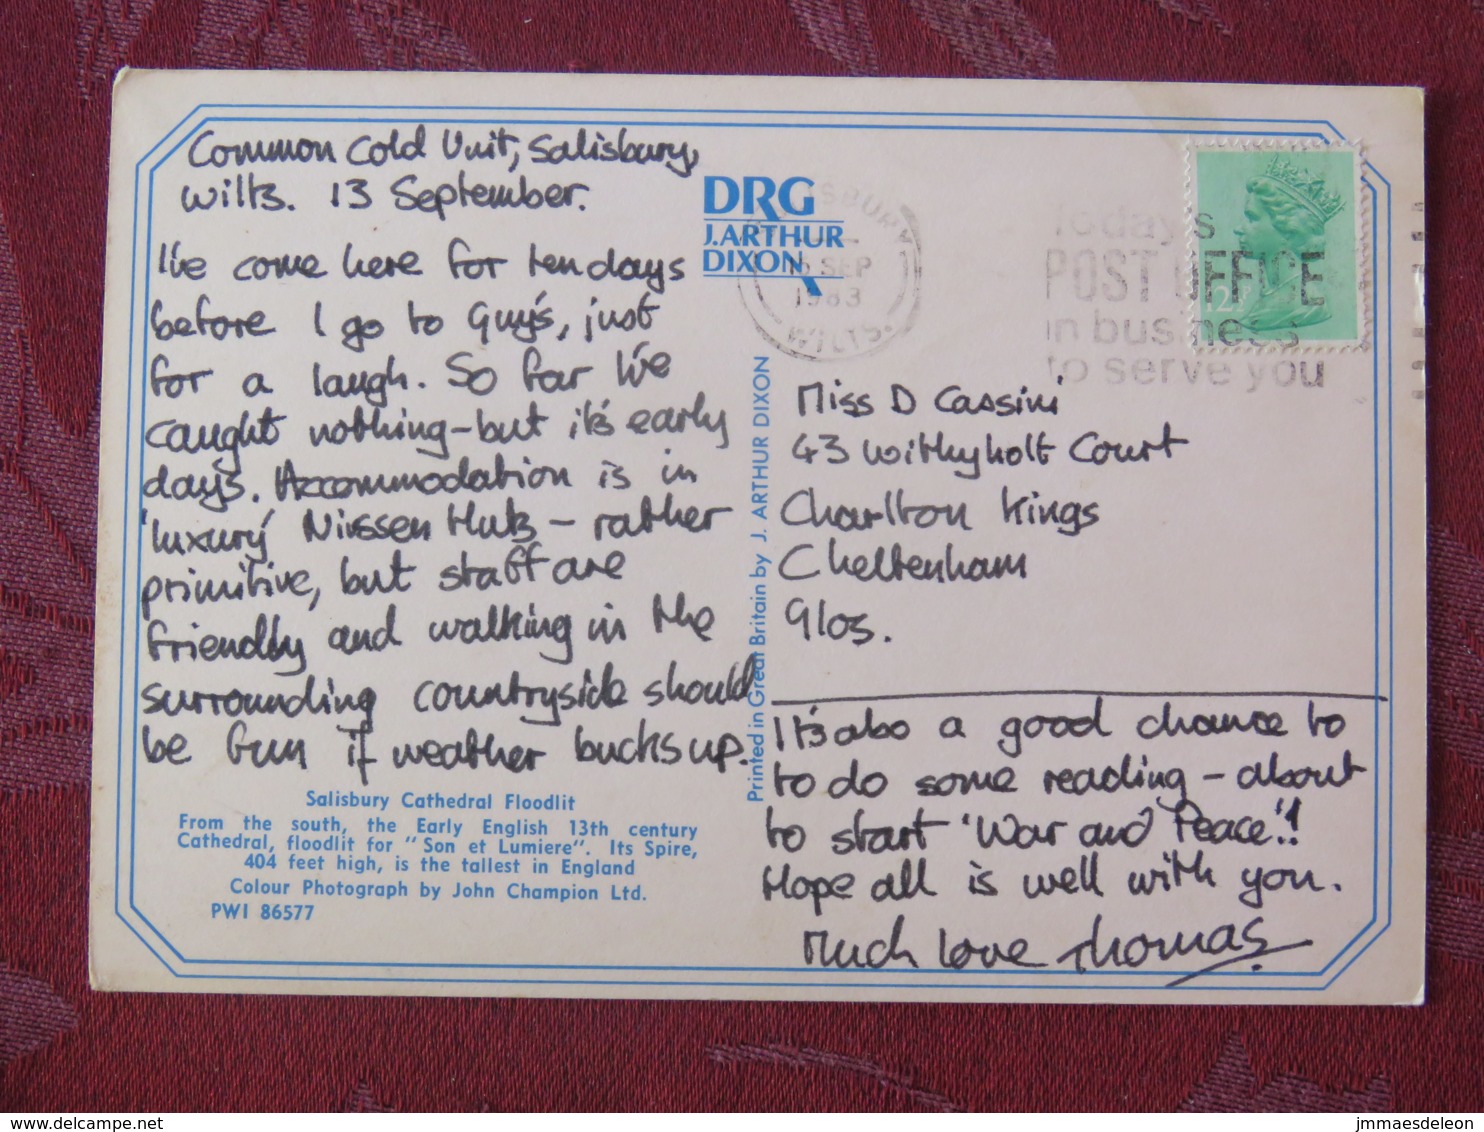 Common Cold Unit, Salisbury,
Wilts. 13 September.
I've come here for ten days
before I go to Guy's, just
for a laugh. So far I've
caught nothing – but it's early
days. Accommodation is in
'luxury' Nissen Huts – rather
primitive, but staff are
friendly and walking in the
surrounding countryside should
be fun if weather bucks up.
Salisbury Cathedral Floodlit
From the south, the Early English 13th century
Cathedral, floodlit for "Son et Lumiere". Its Spire,
404 feet high, is the tallest in England
Colour Photograph by John Champion Ltd.
PWI 86577
DRG
J.ARTHUR
DIXON
Printed in Great Britain by J. ARTHUR DIXON
SEP
1983
WILTS.
Today's
POST OFFICE
in business
to serve you
12½P
Miss D Cassini
43 Withyholt Court
Charlton Kings
Cheltenham
Glos.
It's also a good chance to
to do some reading – about
to start 'War and Peace'!!
Hope all is well with you.
Much love Thomas
www.delcampe.net
jmmaesdeleon